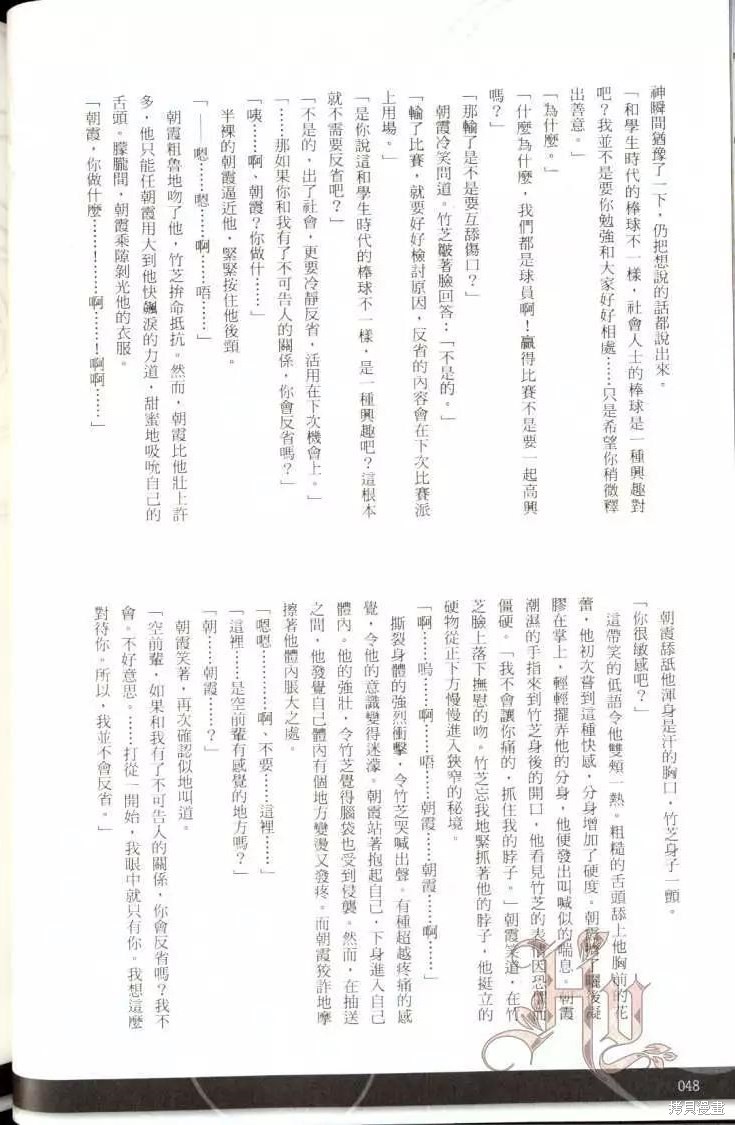 神瞬間猶豫了一下，仍把想說的話都說出來。
「和學生時代的棒球不一樣，社會人士的棒球是一種興趣對
吧？我並不是要你勉強和大家好好相處……只是希望你稍微釋
出善意。」
「為什麼。」
「什麼為什麼，我們都是球員啊！贏得比賽不是要一起高興
嗎？」
「那輸了是不是要互舔傷口？」
朝霞冷笑問道。竹芝皺著臉回答：「不是的。」
「輸了比賽，就要好好檢討原因，反省的內容會在下次比賽派
上用場。」
「是你說這和學生時代的棒球不一樣，是一種興趣吧？這根本
就不需要反省吧？」
「不是的，出了社會，更要冷靜反省，活用在下次機會上。」
「……那如果你和我有了不可告人的關係，你會反省嗎？」
「咦……啊、朝霞？你做什……」
半裸的朝霞逼近他，緊緊按住他後頸。
「——嗯……嗯……啊……唔……」
朝霞粗魯地吻了他，竹芝拚命抵抗。然而，朝霞比他壯上許
多，他只能任朝霞用大到他快飆淚的力道，甜蜜地吸吮自己的
舌頭。朦朧間，朝霞乘隙剝光他的衣服。
「朝霞，你做什麼……！……啊……！啊啊……」
朝霞舔舐他渾身是汗的胸口，竹芝身子一顫。
「你很敏感吧？」
這帶笑的低語令他雙頰一熱。粗糙的舌頭舔上他胸前的花
蕾，他初次嘗到這種快感，分身增加了硬度。朝霞擠了曬後凝
膠在掌上，輕輕擺弄他的分身，他便發出叫喊似的喘息。朝霞
潮濕的手指來到竹芝身後的開口，他看見竹芝的表情因恐懼而
僵硬。「我不會讓你痛的，抓住我的脖子。」朝霞笑道，在竹
芝臉上落下撫慰的吻。竹芝忘我地緊抓著他的脖子，他挺立的
硬物從正下方慢慢進入狹窄的秘境。
「啊……嗚……啊……唔……朝霞……朝霞……啊……」
撕裂身體的強烈衝擊，令竹芝哭喊出聲。有種超越疼痛的感
覺，令他的意識變得迷濛。朝霞站著抱起自己，下身進入自己
體內。他的強壯，令竹芝覺得腦袋也受到侵襲。然而，在抽送
之間，他發覺自己體內有個地方變燙又發疼。而朝霞狡詐地摩
擦著他體內脹大之處。
「嗯嗯…………啊、不要……這裡……」
「這裡……是空前輩有感覺的地方嗎？」
「朝……朝霞……？」
朝霞笑著，再次確認似地叫道。
「空前輩，如果和我有了不可告人的關係，你會反省嗎？我不
會。不好意思。……打從一開始，我眼中就只有你。我想這麼
對待你。所以，我並不會反省。」
048
拷貝漫畫